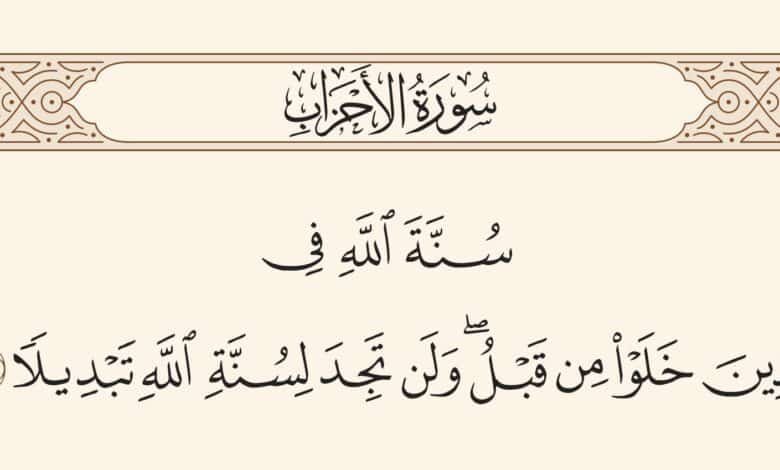 سُورَةُ الأَحْزَابِ
سُنَّةَ ٱللَّهِ فِى
خَلَوْا۟ مِن قَبْلُ ۖ وَلَن تَجِدَ لِسُنَّةِ ٱللَّهِ تَبْدِيلًا